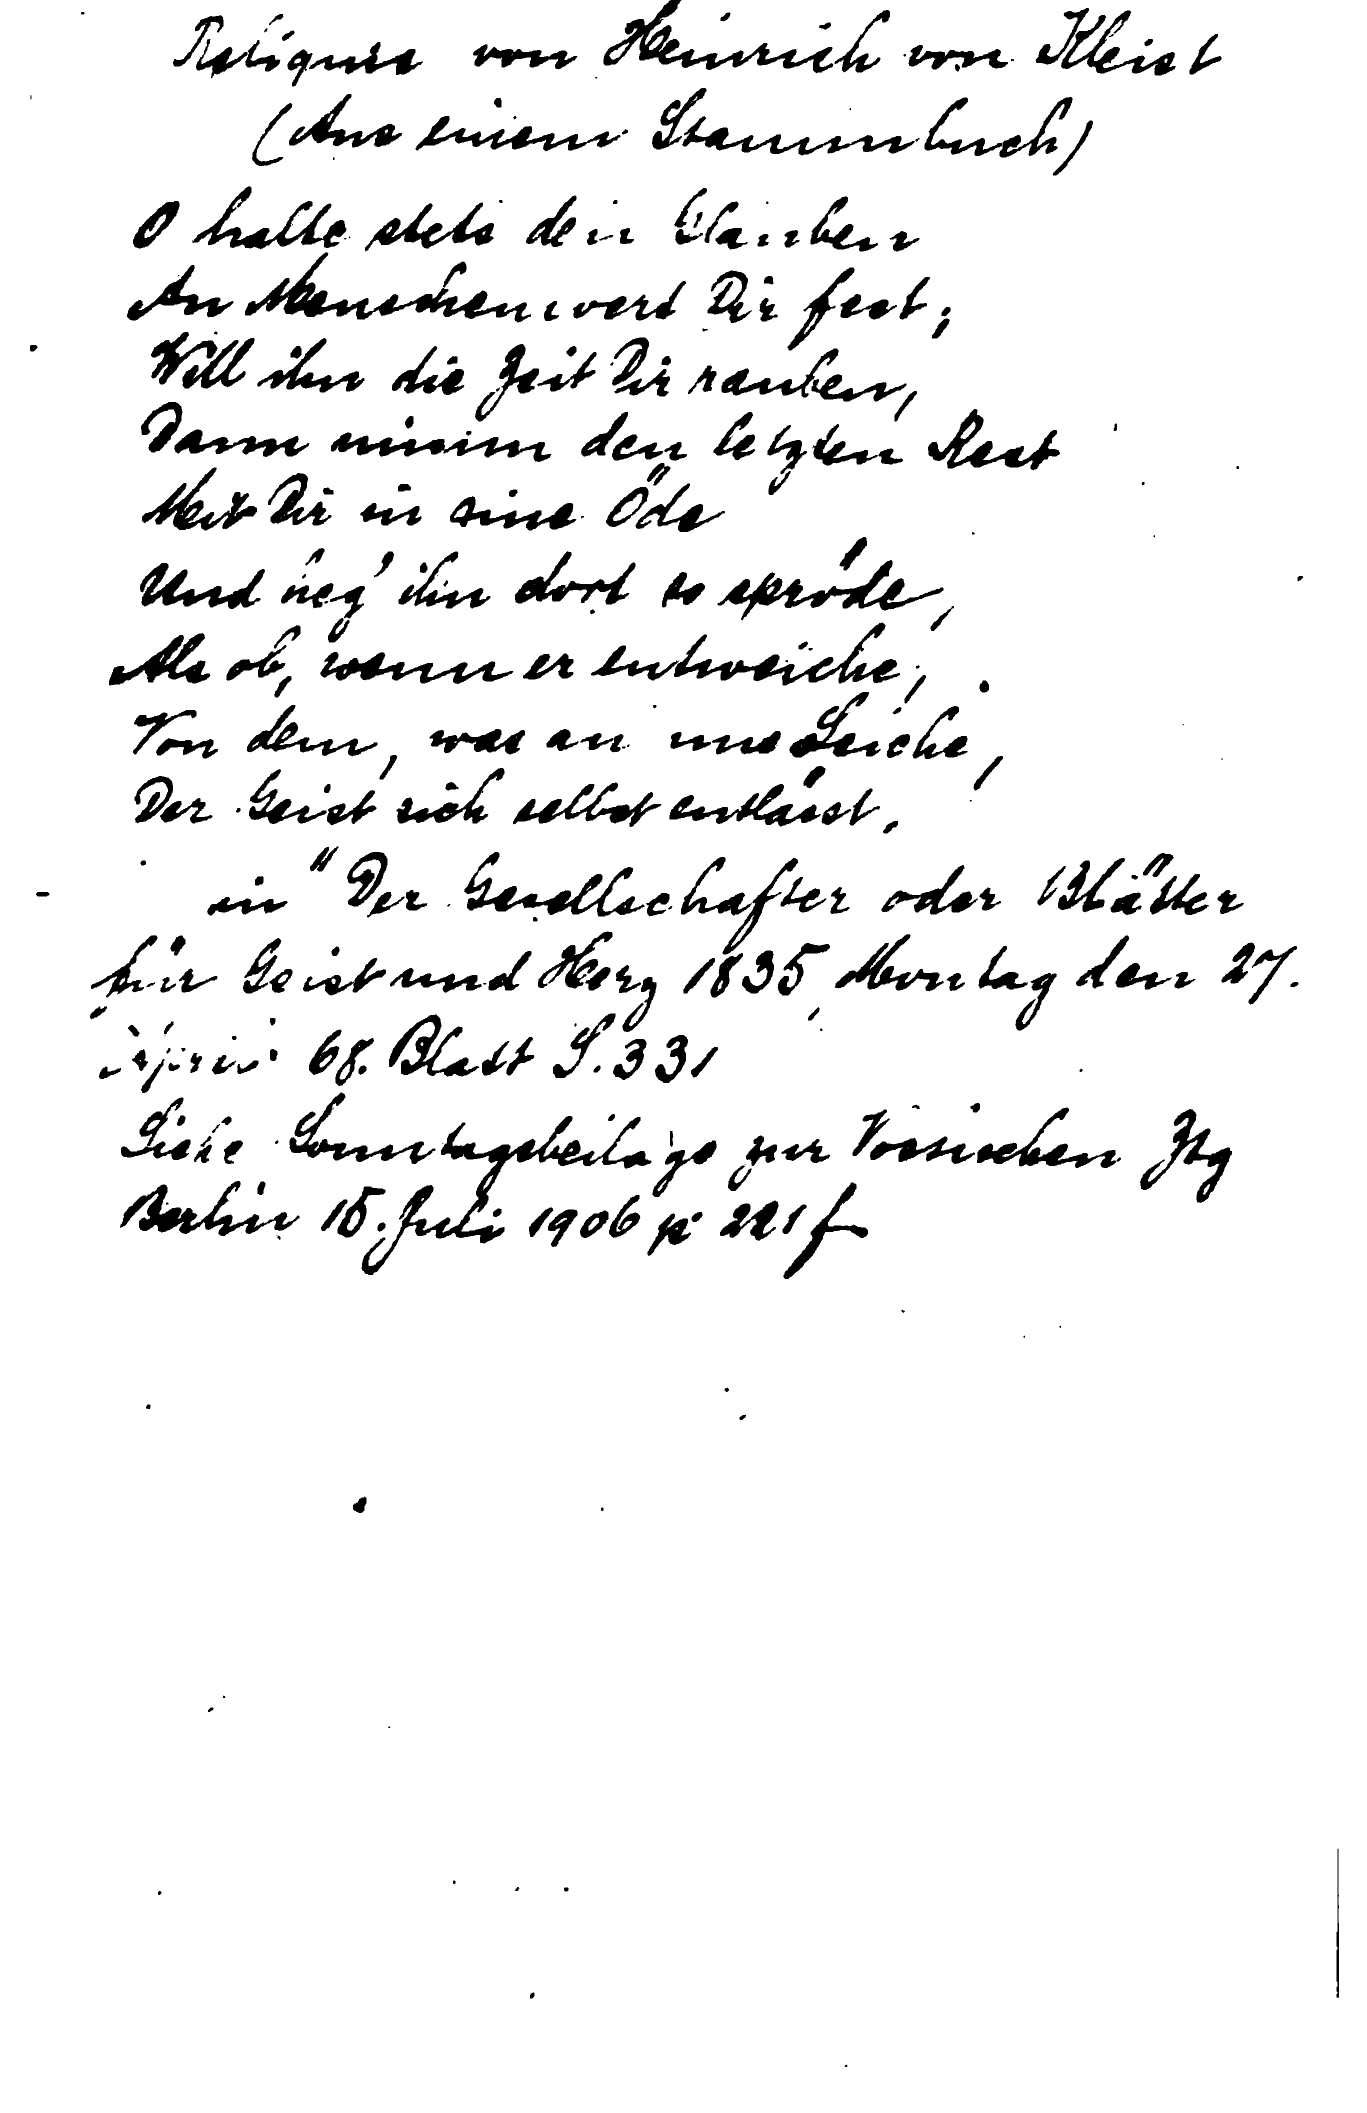 Reliquie von Heinrich von Kleist
(Aus einem Stammbuch)
O halte stets den Glauben
An Menschenwert Dir fest;
Will ihn die Zeit Dir rauben,
Dann nimm den letzten Rest
Mit Dir in eine Öde
Und heg' ihn dort so spröde,
Als ob, wenn er entweiche,
Von dem, was an uns Leiche,
Der Geist sich selbst entlässt.
in "Der Gesellschafter oder Blätter
für Geist und Herz 1835, Montag den 27.
April 68. Blatt S. 331
Siehe Sonntagsbeilage zur Vossischen Ztg
Berlin 15. Juli 1906 p. 221 f